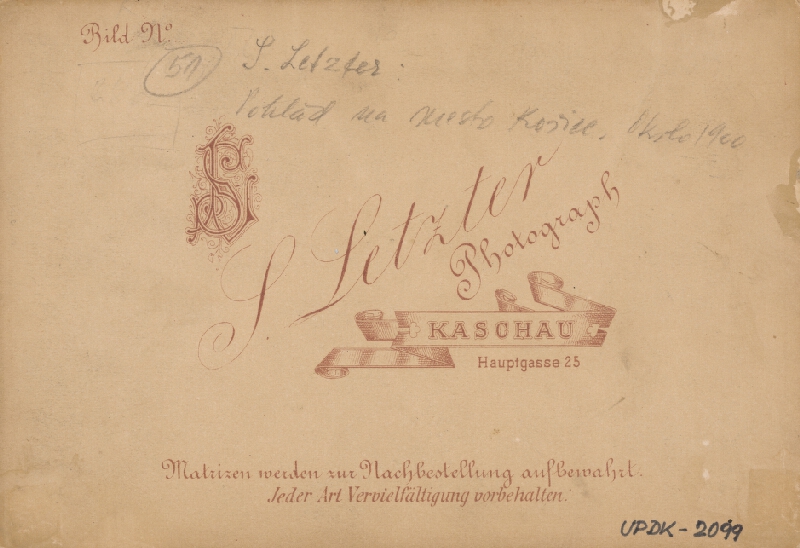 Bild No
51
S. Letzter.
Pohľad na mesto Košice. Okolo 1900
SL
S. Letzter
Photograph
KASCHAU
Hauptgasse 25
Matrizen werden zur Nachbestellung aufbewahrt.
Jeder Art Vervielfältigung vorbehalten.
UPDK-2099